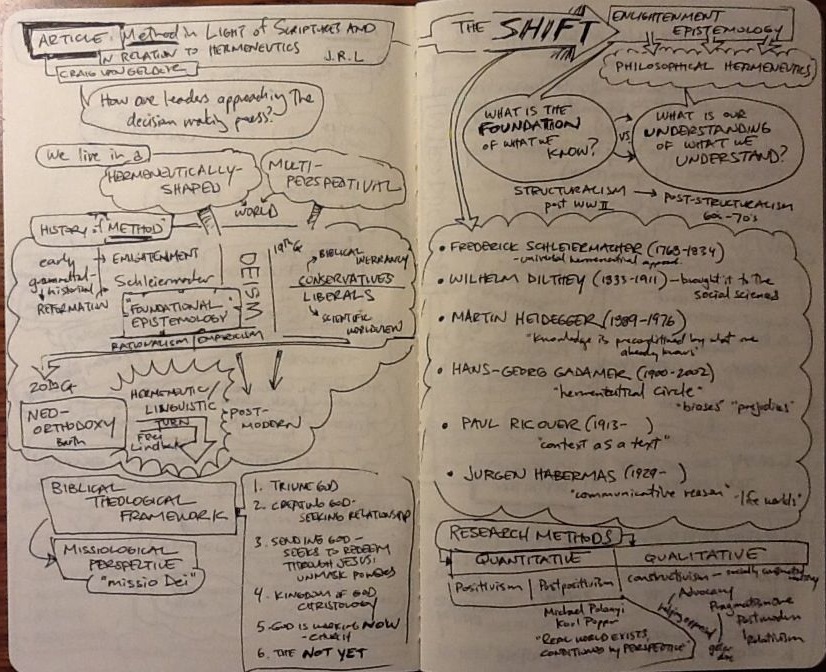 ARTICLE: Method in LIGHT of SCRIPTURES AND
IN RELATION TO HERMENEUTICS
J.R.L
CRAIG VAN GELDER
How are leaders approaching the
decision making process?
We live in a
HERMENEUTICALLY-
SHAPED
MULTI-
PERSPECTIVAL
WORLD
HISTORY of "METHOD"
early
grammatical-
historical
REFORMATION
ENLIGHTENMENT
Schleiermacher
"FOUNDATIONAL"
EPISTEMOLOGY
RATIONALISM | EMPIRICISM
DEISM
19th C
BIBLICAL
INERRANCY
CONSERVATIVES
LIBERALS
SCIENTIFIC
WORLDVIEW
20th C
NEO-
ORTHODOXY
Barth
HERMENEUTIC/
LINGUISTIC
TURN
Frei
Lindbeck
POST-
MODERN
BIBLICAL
THEOLOGICAL
FRAMEWORK
MISSIOLOGICAL
PERSPECTIVE
"missio Dei"
1. TRIUNE GOD
2. CREATING GOD-
SEEKING RELATIONSHIP
3. SENDING GOD-
SEEKS TO REDEEM
THROUGH JESUS;
UNMASK POWERS
4. KINGDOM OF GOD
CHRISTOLOGY
5. GOD IS WORKING NOW
-CHURCH
6. THE NOT YET
THE SHIFT
ENLIGHTENMENT
EPISTEMOLOGY
PHILOSOPHICAL HERMENEUTICS
WHAT IS THE
FOUNDATION
OF WHAT WE
KNOW?
VS.
WHAT IS OUR
UNDERSTANDING
OF WHAT WE
UNDERSTAND?
STRUCTURALISM
post WWII
POST-STRUCTURALISM
60's-70's
• FREDERICK SCHLEIERMACHER (1768-1834)
-universal hermeneutical approach
• WILHELM DILTHEY (1833-1911) - brought it to the
social sciences
• MARTIN HEIDEGGER (1889-1976)
"Knowledge is preconditioned by what one
already knows"
• HANS-GEORG GADAMER (1900-2002)
"hermeneutical circle"
"biases" "prejudices"
• PAUL RICOUER (1913- )
"context as a text"
• JURGEN HABERMAS (1929- )
"communicative reason" - "life worlds"
RESEARCH METHODS
QUANTITATIVE
QUALITATIVE
Positivism | Postpositivism
Michael Polanyi
Karl Popper
"REAL WORLD EXISTS,
CONDITIONED BY PERSPECTIVE"
constructivism - socially constructed
Advocacy
Pragmatism
Postmodern
Relativism